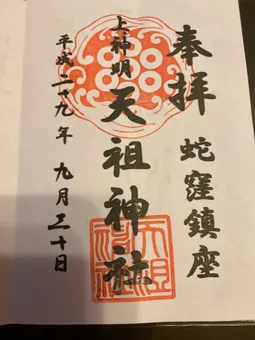 奉拝
蛇窪鎮座
上神明
天祖神社
平成二十九年 九月三十日